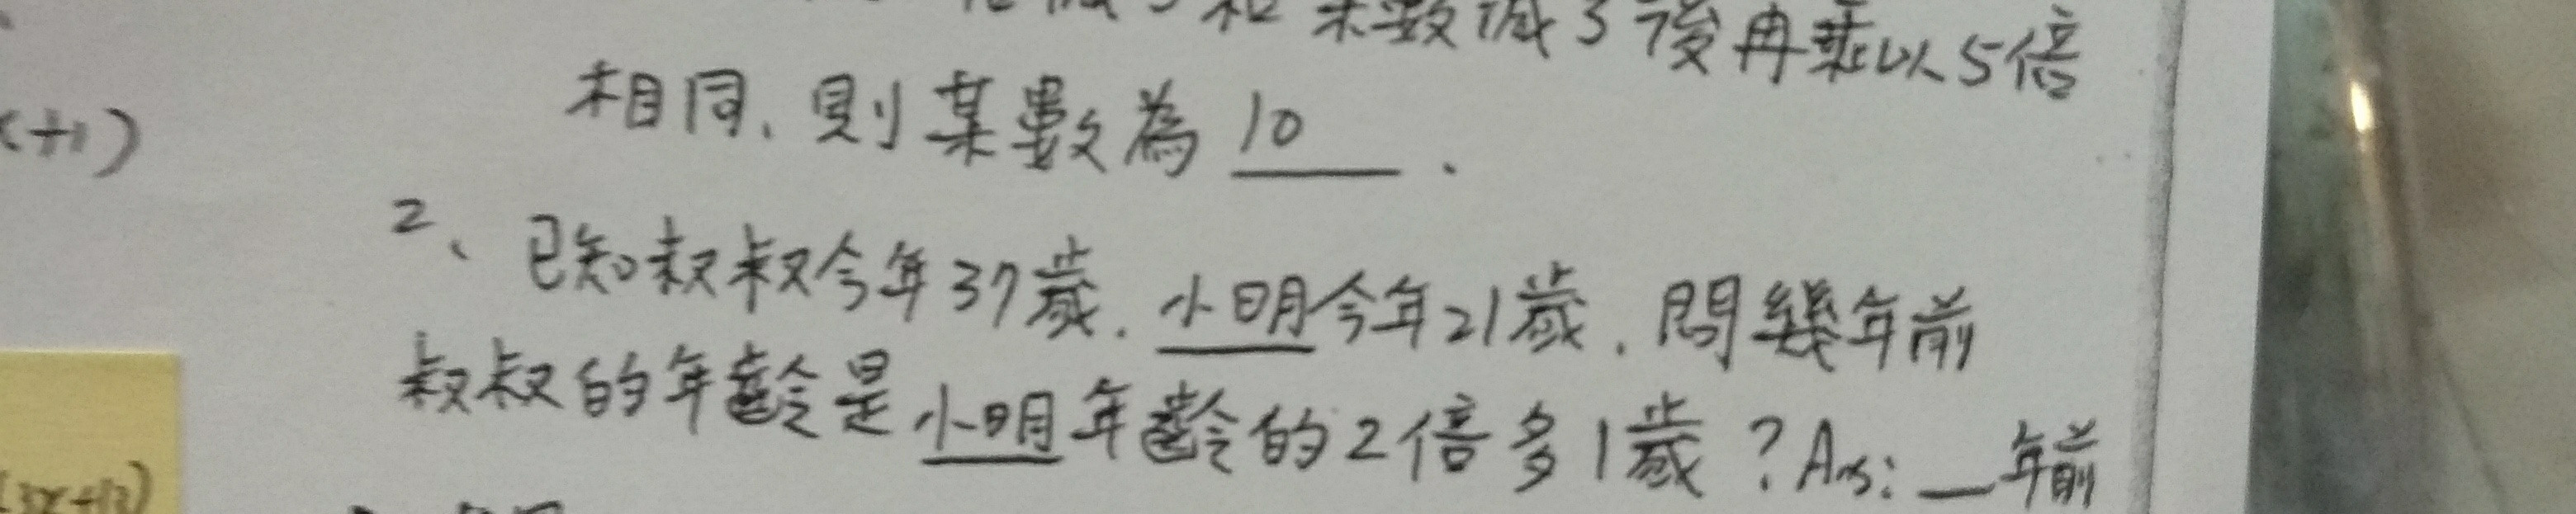 某數減3後再乘以5倍
相同,則某數為 10 .
(+1)
2、已知叔叔今年37歲.小明今年21歲.問幾年前
叔叔的年齡是小明年齡的2倍多1歲?Ans:__年前